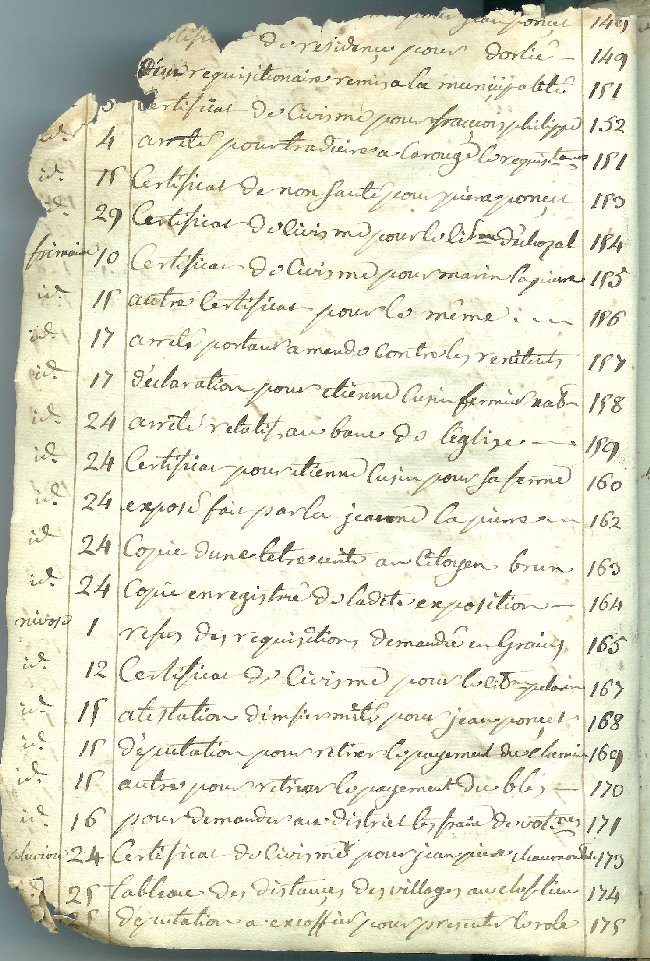 pour jean ponçet 149
de residençe pour dorlié 149
requisitionaire remis a la muniçipalité 151
id. Certificat de Civisme pour françois philippe 152
id. 4 arrêté pour tradüire a Carouge le 151
id. 15 Certificat de non santé pour piere ponçet 153
id. 29 Certificat de Civisme pour le 154
frimaire 10 Certificat de Civisme pour marin lapierre 155
id. 15 autre Certificat pour le même 156
id. 17 arrêté portant amande Contre les 157
id. 17 déclaration pour etienne Cusin fermier 158
id. 24 arrêté relatif au banc de léglise 159
id. 24 Certificat pour etienne Cusin pour sa ferme 160
id. 24 exposé fait par la jeanne lapierre 162
id. 24 Copie dune letre au Citoyen brun 163
id. 24 Copie enregistré de ladite exposition 164
nivose 1 refus des requisitions demandé en Grains 165
id. 12 Certificat de Civisme pour le 167
id. 15 atestation dinfiermité pour jean ponçet 168
id. 15 députation pour retirer le payement du 169
id. 15 autre pour retirer le payement du bles 170
id. 16 pour demander au district les frais de 171
pluviose 24 Certificat de Civisme pour jean piere 173
id. 25 tableau des distançes des villages au cheflieu 174
députation a pour presenter le role 175